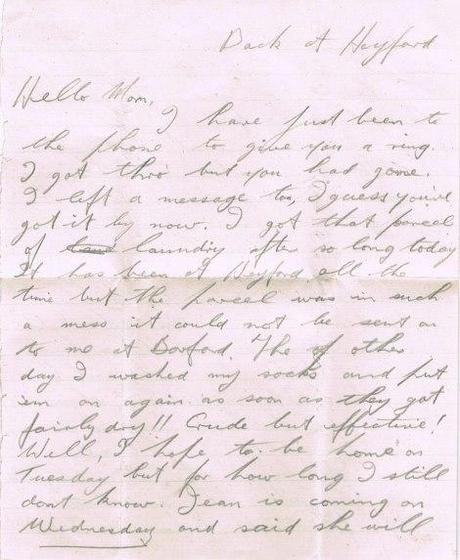 Back at Heyford
Hello Mom,
I have just been to
the phone to give you a ring.
I got thro' but you had gone.
I left a message too, I guess you've
got it by now. I got that parcel
of laundry after so long today
It has been at Heyford all the
time but the parcel was in such
a mess it could not be sent on
to me at Boxford. The other
day I washed my socks and put
'em on again as soon as they got
fairly dry!! Crude but effective!
Well, I hope to be home on
Tuesday but for how long I still
dont know. Jean is coming on
Wednesday and said she will